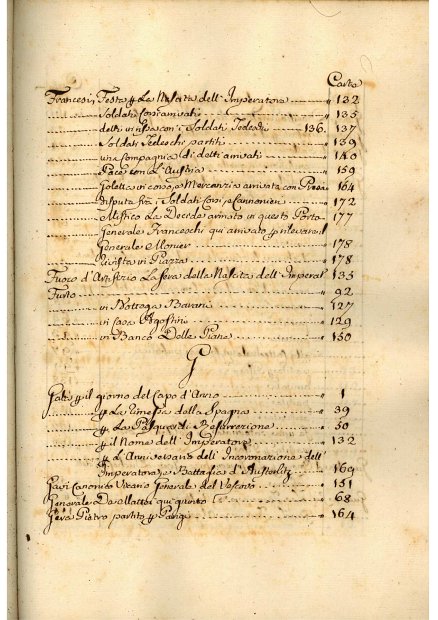 Carta
Francesi, Festa per La Nascita dell' Imperatore 132
Soldati Coscritti 135
detti in con i Soldati Tedeschi 136. 137
Soldati Tedeschi partiti 139
una Compagnia di detti arrivati 140
Pace con L'Austria 159
Goletta in corso, e Mercanzia arrivata con Preda 164
disputa fra i Soldati Corsi, e Cannonieri 172
Mistico La Decida armato in questo Porto 177
Generale Franceschi qui arrivato per rilevare il
Generale Mosuer 178
Rivista in Piazza 178
Fuoco d'Artifizio La sera della Nascita dell' Imperat 135
Furto 92
in Bottega Bavani 127
in casa Agostini 129
in Banco Delle Piane 150
G
Gala per il giorno del Capo d'Anno 1
per La Rimessa della Spagna 39
per La Pasqua di Resurrezione 50
per il Nome dell' Imperatore 132
per L'Anniversario dell' Incoronazione dell'
Imperatore, e Battaglia d'Austerlitz 160
Gavi Canonico Vicario Generale del Vescovo 151
Generale qui giunto 68
Gera Pietro partito per Parigi 164